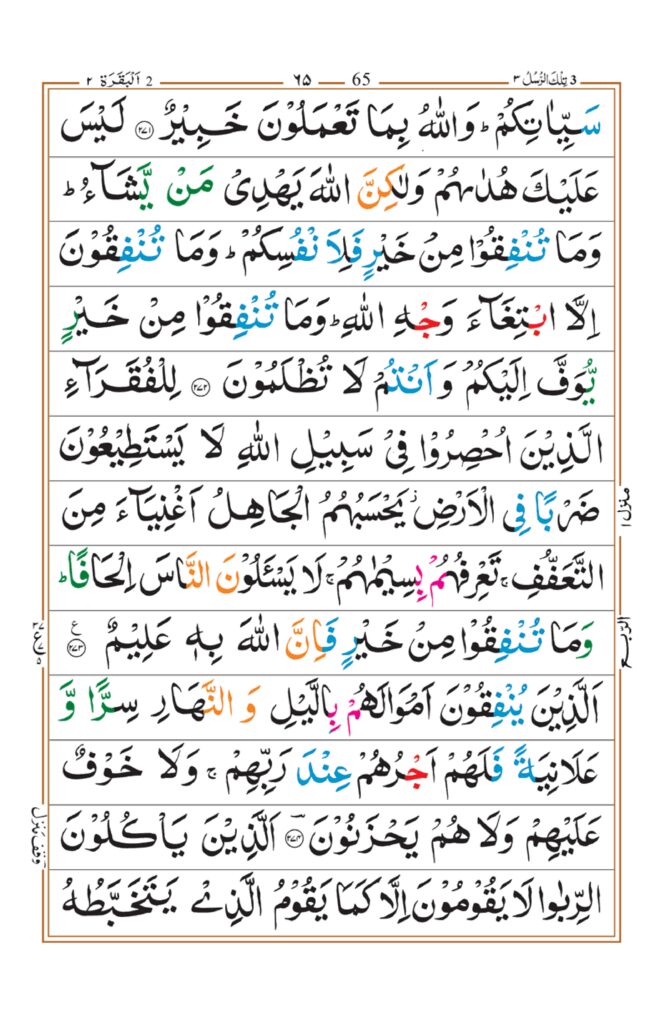 3 تِلْكَ الرُّسُلُ ٣
65 ٦٥
2 اَلْبَقَرَة ٢
سَيِّاٰتِكُمْ ؕ وَاللّٰهُ بِمَا تَعْمَلُوْنَ خَبِيْرٌ ﴿۲۷۱﴾ لَيْسَ
عَلَيْكَ هُدٰىهُمْ وَلٰكِنَّ اللّٰهَ يَهْدِىْ مَنْ يَّشَآءُ ؕ
وَمَا تُنْفِقُوْا مِنْ خَيْرٍ فَلِاَنْفُسِكُمْ ؕ وَمَا تُنْفِقُوْنَ
اِلَّا ابْتِغَآءَ وَجْهِ اللّٰهِ ؕ وَمَا تُنْفِقُوْا مِنْ خَيْرٍ
يُّوَفَّ اِلَيْكُمْ وَاَنْتُمْ لَا تُظْلَمُوْنَ ﴿۲۷۲﴾ لِلْفُقَرَآءِ
الَّذِيْنَ اُحْصِرُوْا فِىْ سَبِيْلِ اللّٰهِ لَا يَسْتَطِيْعُوْنَ
ضَرْبًا فِى الْاَرْضِ ز يَحْسَبُهُمُ الْجَاهِلُ اَغْنِيَآءَ مِنَ
التَّعَفُّفِ ۚ تَعْرِفُهُمْ بِسِيْمٰهُمْ ۚ لَا يَسْـَٔلُوْنَ النَّاسَ اِلْحَافًا ؕ
وَمَا تُنْفِقُوْا مِنْ خَيْرٍ فَاِنَّ اللّٰهَ بِهٖ عَلِيْمٌ ﴿۲۷۳﴾ ع
اَلَّذِيْنَ يُنْفِقُوْنَ اَمْوَالَهُمْ بِالَّيْلِ وَالنَّهَارِ سِرًّا وَّ
عَلَانِيَةً فَلَهُمْ اَجْرُهُمْ عِنْدَ رَبِّهِمْ ۚ وَلَا خَوْفٌ
عَلَيْهِمْ وَلَا هُمْ يَحْزَنُوْنَ ﴿۲۷۴﴾ اَلَّذِيْنَ يَاْكُلُوْنَ
الرِّبٰوا لَا يَقُوْمُوْنَ اِلَّا كَمَا يَقُوْمُ الَّذِىْ يَتَخَبَّطُهُ
منزل ١
الربع
وقف منزل